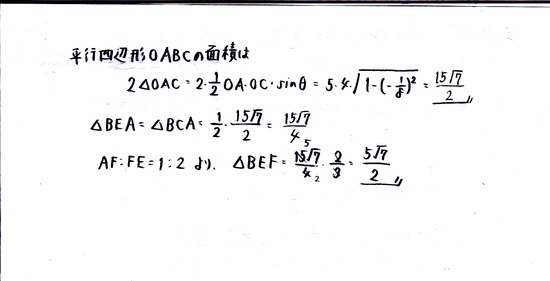 平行四辺形OABCの面積は
2△OAC = 2・1/2 OA・OC・sinθ = 5・4・√(1-(-1/8)²) = 15√7/2
△BEA = △BCA = 1/2・15√7/2 = 15√7/4
AF:FE = 1:2 より、 △BEF = 15√7/4・2/3 = 5√7/2